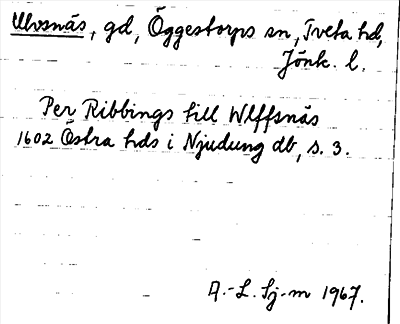 Ulvsnäs, gd, Öggestorps sn, Tveta hd,
Jönk. l.
Per Ribbings till Wlffsnäs
1602 Östra hds i Njudung db, s. 3.
A.-L. Sj-m 1967.